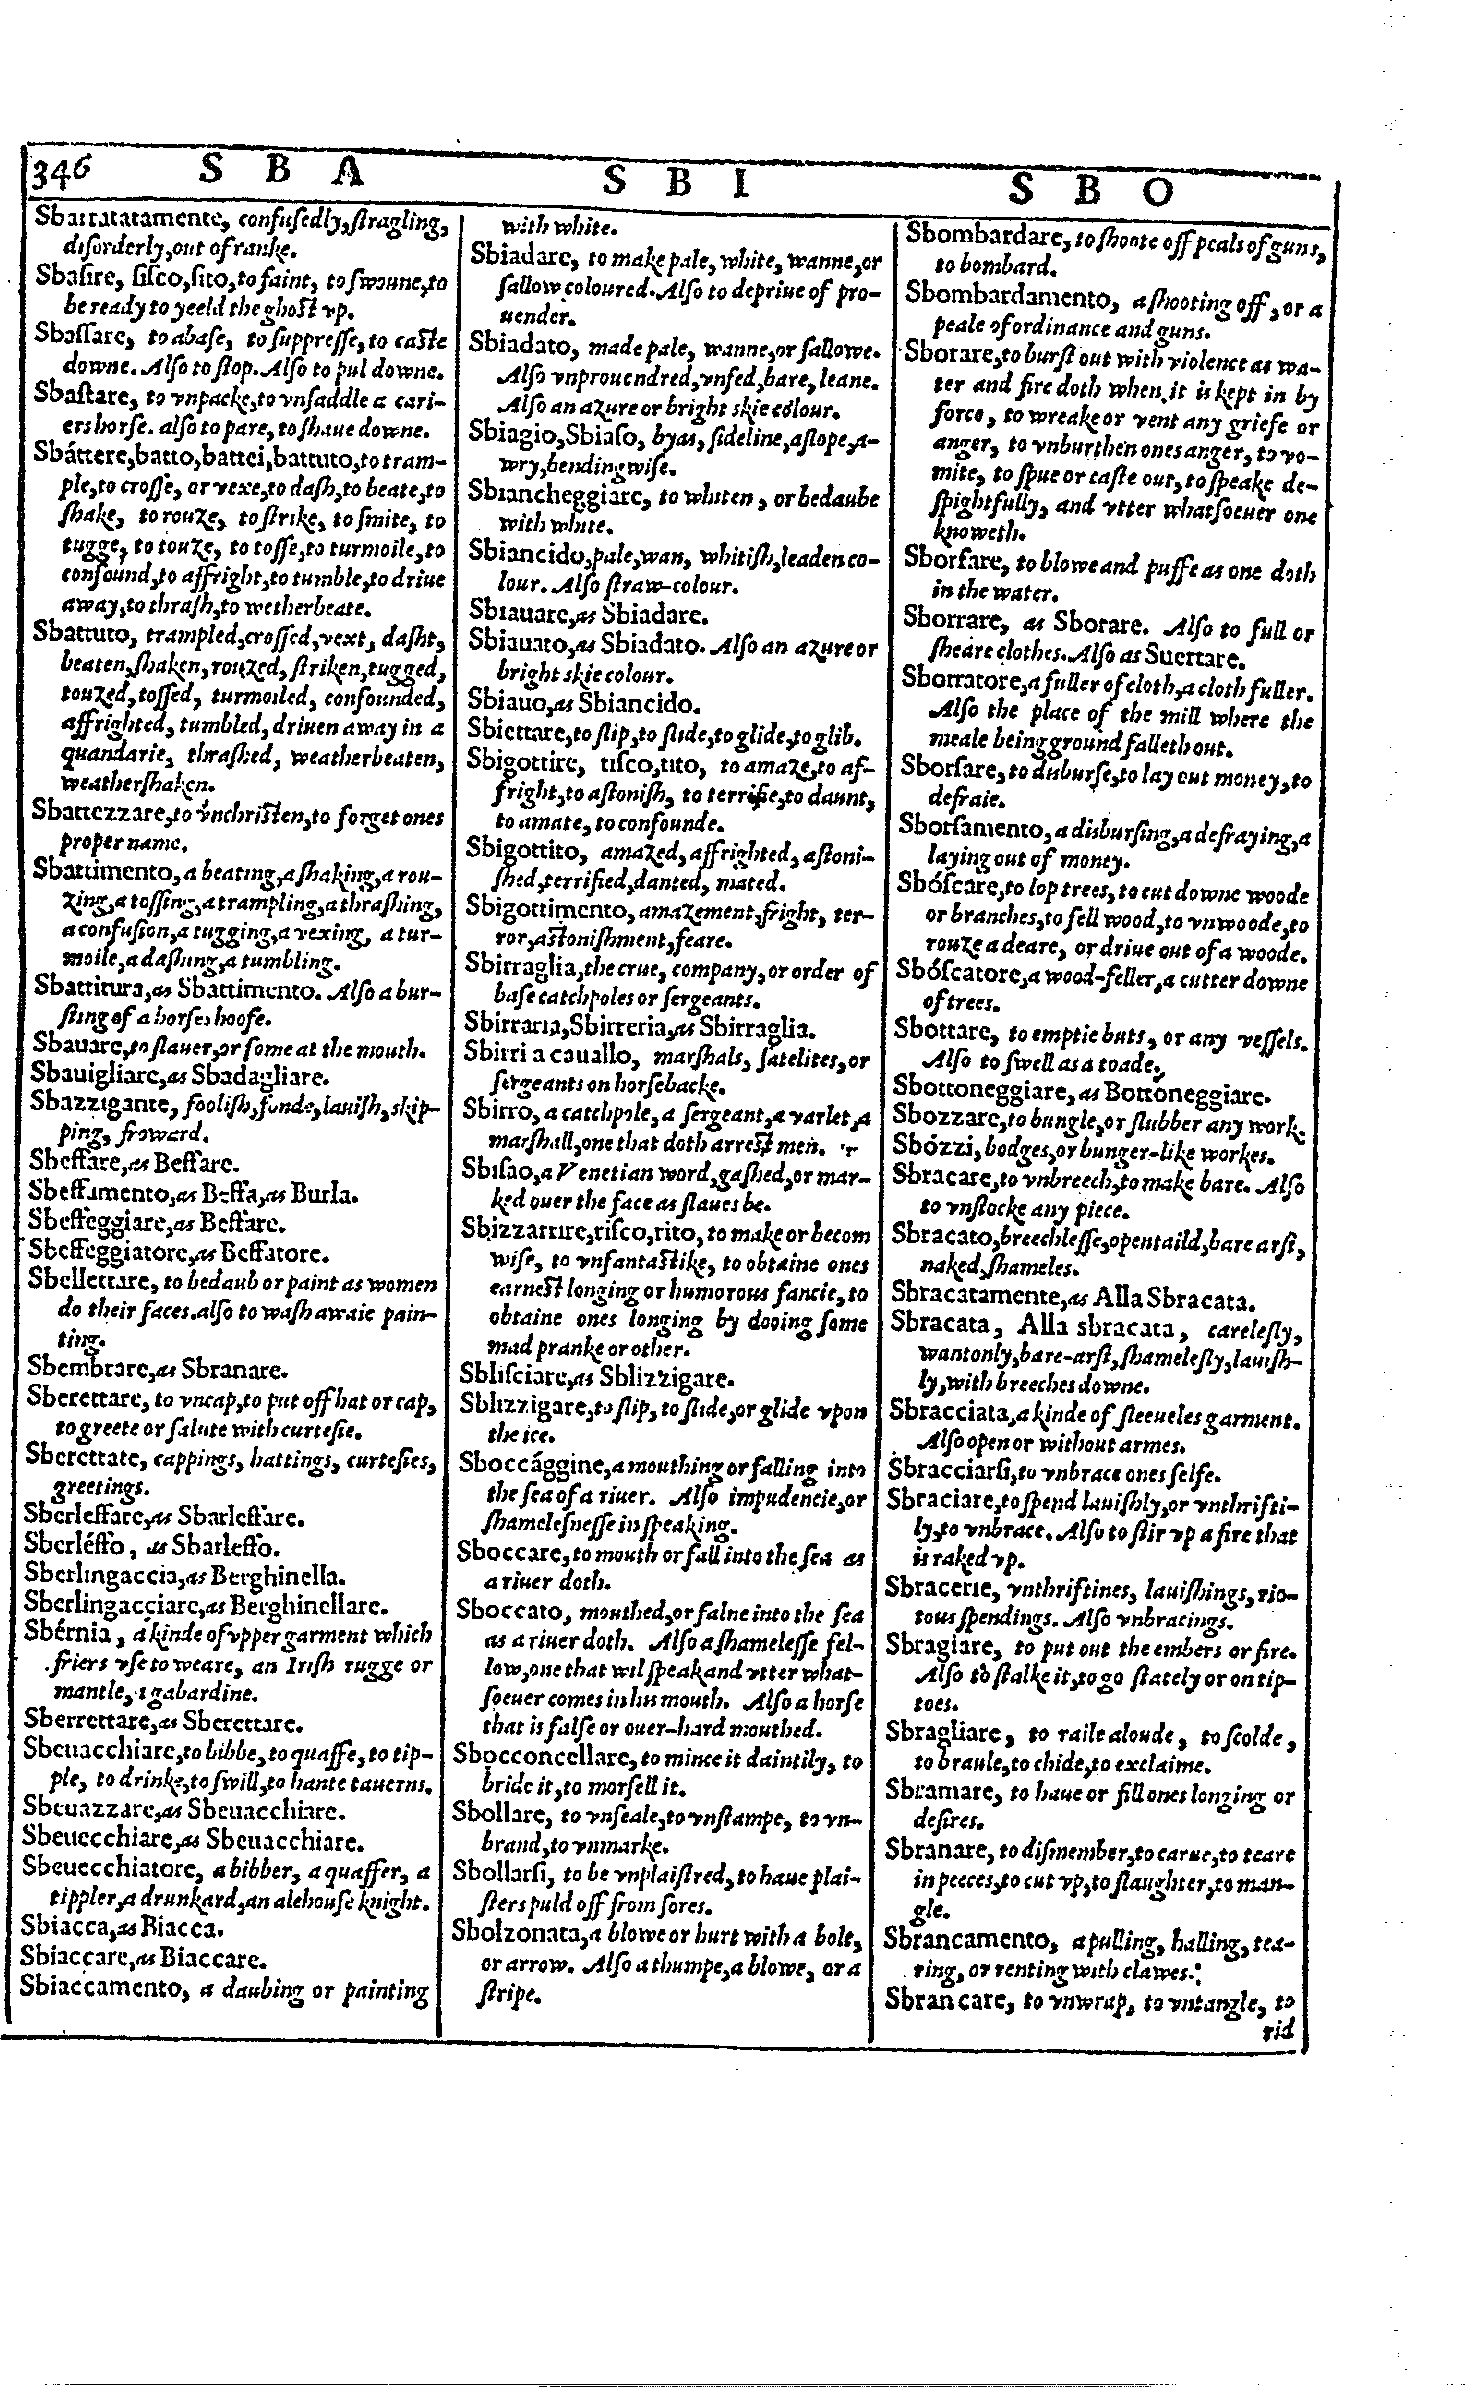 346 S B A S B I S B O
Sbarratatamente, confuſedly, ſtragling,
diſorderly, out of ranke.
Sbaſire, ſiſco, ſito, to faint, to ſwoune, to
be ready to yeeld the ghoſt vp.
Sbaſſare, to abaſe, to ſuppreſſe, to caſte
downe. Alſo to ſtop. Alſo to pul downe.
Sbaſtare, to vnpacke, to vnſaddle a cari-
ers horſe. alſo to pare, to ſhaue downe.
Sbáttere, batto, battei, battuto, to tram-
ple, to croſſe, or vexe, to daſh, to beate, to
ſhake, to rouze, to ſtrike, to ſmite, to
tugge, to touze, to toſſe, to turmoile, to
confound, to affright, to tumble, to driue
away, to thraſh, to wetherbeate.
Sbattuto, trampled, croſſed, vext, daſht,
beaten, ſhaken, rouzed, ſtriken, tugged,
touzed, toſſed, turmoiled, confounded,
affrighted, tumbled, driuen away in a
quandarie, thraſhed, weatherbeaten,
weatherſhaken.
Sbattezzare, to vnchriſten, to forget ones
proper name.
Sbattimento, a beating, a ſhaking, a rou-
zing, a toſſing, a trampling, a thraſhing,
a confuſion, a tugging, a vexing, a tur-
moile, a daſhing, a tumbling.
Sbattitura, as Sbattimento. Alſo a bur-
ſting of a horſes hoofe.
Sbauare, to ſlauer, or fome at the mouth.
Sbauigliare, as Sbadagliare.
Sbazzigante, fooliſh, fonde, lauiſh, skip-
ping, froward.
Sbeffare, as Beffare.
Sbeffamento, as Beffa, as Burla.
Sbeffeggiare, as Beffare.
Sbeffeggiatore, as Beffatore.
Sbellettare, to bedaub or paint as women
do their faces. alſo to waſh awaie pain-
ting.
Sbembrare, as Sbranare.
Sberettare, to vncap, to put off hat or cap,
to greete or ſalute with curteſie.
Sberettate, cappings, hattings, curteſies,
greetings.
Sberleffare, as Sbarleffare.
Sberléffo, as Sbarleffo.
Sberlingaccia, as Berghinella.
Sberlingacciare, as Berghinellare.
Sbérnia, a kinde of vpper garment which
friers vſe to weare, an Iriſh rugge or
mantle, a gabardine.
Sberrettare, as Sberettare.
Sbeuacchiare, to bibbe, to quaffe, to tip-
ple, to drinke, to ſwill, to hante tauerns.
Sbeuazzare, as Sbeuacchiare.
Sbeuecchiare, as Sbeuacchiare.
Sbeuecchiatore, a bibber, a quaffer, a
tippler, a drunkard, an alehouſe knight.
Sbiacca, as Biacca.
Sbiaccare, as Biaccare.
Sbiaccamento, a daubing or painting
with white.
Sbiadare, to make pale, white, wanne, or
ſallow coloured. Alſo to depriue of pro-
uender.
Sbiadato, made pale, wanne, or ſallowe.
Alſo vnprouendred, vnfed, bare, leane.
Alſo an azure or bright skie colour.
Sbiagio, Sbiaſo, byas, ſideline, aſlope, a-
wry, bending wiſe.
Sbiancheggiare, to whiten, or bedaube
with white.
Sbiancido, pale, wan, whitiſh, leaden co-
lour. Alſo ſtraw-colour.
Sbiauare, as Sbiadare.
Sbiauato, as Sbiadato. Alſo an azure or
bright skie colour.
Sbiauo, as Sbiancido.
Sbiettare, to ſlip, to ſlide, to glide, to glib.
Sbigottire, tiſco, tito, to amaze, to af-
fright, to aſtoniſh, to terrifie, to daunt,
to amate, to confounde.
Sbigottito, amazed, affrighted, aſtoni-
ſhed, terrified, danted, mated.
Sbigottimento, amazement, fright, ter-
ror, aſtoniſhment, feare.
Sbirraglia, the crue, company, or order of
baſe catchpoles or ſergeants.
Sbirraria, Sbirreria, as Sbirraglia.
Sbirri a cauallo, marſhals, ſatelites, or
ſergeants on horſebacke.
Sbirro, a catchpole, a ſergeant, a varlet, a
marſhall, one that doth arreſt men.
Sbiſao, a Venetian word, gaſhed, or mar-
ked ouer the face as ſlaues be.
Sbizzarrire, riſco, rito, to make or becom
wiſe, to vnfantaſtike, to obtaine ones
earneſt longing or humorous fancie, to
obtaine ones longing by dooing ſome
mad pranke or other.
Sbliſciare, as Sblizzigare.
Sblizzigare, to ſlip, to ſlide, or glide vpon
the ice.
Sboccággine, a mouthing or falling into
the ſea of a riuer. Alſo impudencie, or
ſhameleſneſſe in ſpeaking.
Sboccare, to mouth or fall into the ſea as
a riuer doth.
Sboccato, mouthed, or falne into the ſea
as a riuer doth. Alſo a ſhameleſſe fel-
low, one that wil ſpeak and vtter what-
ſoeuer comes in his mouth. Alſo a horſe
that is falſe or ouer-hard mouthed.
Sbocconcellare, to mince it daintily, to
bride it, to morſell it.
Sbollare, to vnſeale, to vnſtampe, to vn-
brand, to vnmarke.
Sbollarſi, to be vnplaiſtred, to haue plai-
ſters puld off from ſores.
Sbolzonata, a blowe or hurt with a bolt,
or arrow. Alſo a thumpe, a blowe, or a
ſtripe.
Sbombardare, to ſhoote off peals of guns,
to bombard.
Sbombardamento, a ſhooting off, or a
peale of ordinance and guns.
Sborare, to burſt out with violence as wa-
ter and fire doth when it is kept in by
force, to wreake or vent any griefe or
anger, to vnburthen ones anger, to vo-
mite, to ſpue or caſte out, to ſpeake de-
ſpightfully, and vtter whatſoeuer one
knoweth.
Sborfare, to blowe and puffe as one doth
in the water.
Sborrare, as Sborare. Alſo to full or
ſheare clothes. Alſo as Suerrare.
Sborratore, a fuller of cloth, a cloth fuller.
Alſo the place of the mill where the
meale being ground falleth out.
Sborſare, to disburſe, to lay out money, to
defraie.
Sborſamento, a disburſing, a defraying, a
laying out of money.
Sbóſcare, to lop trees, to cut downe woode
or branches, to fell wood, to vnwoode, to
rouze a deare, or driue out of a woode.
Sbóſcatore, a wood-feller, a cutter downe
of trees.
Sbottare, to emptie buts, or any veſſels.
Alſo to ſwell as a toade.
Sbottoneggiare, as Bottoneggiare.
Sbozzare, to bungle, or ſlubber any work.
Sbózzi, bodges, or bunger-like workes.
Sbracare, to vnbreech, to make bare. Alſo
to vnſtocke any piece.
Sbracato, breechleſſe, opentaild, bare arſt,
naked, ſhameles.
Sbracatamente, as Alla Sbracata.
Sbracata, Alla sbracata, careleſly,
wantonly, bare-arſt, ſhameleſly, lauiſh-
ly, with breeches downe.
Sbracciata, a kinde of ſleeueles garment.
Alſo open or without armes.
Sbracciarſi, to vnbrace ones ſelfe.
Sbraciare, to ſpend lauiſhly, or vnthrifti-
ly, to vnbrace. Alſo to ſtir vp a fire that
is raked vp.
Sbracerie, vnthriftines, lauiſhings, rio-
tous ſpendings. Alſo vnbracings.
Sbragiare, to put out the embers or fire.
Alſo to ſtalke it, to go ſtately or on tip-
toes.
Sbragliare, to raile aloude, to ſcolde,
to braule, to chide, to exclaime.
Sbramare, to haue or fill ones longing or
deſires.
Sbranare, to diſmember, to carue, to teare
in peeces, to cut vp, to ſlaughter, to man-
gle.
Sbrancamento, a pulling, halling, tea-
ring, or renting with clawes.
Sbrancare, to vnwrap, to vntangle, to
rid